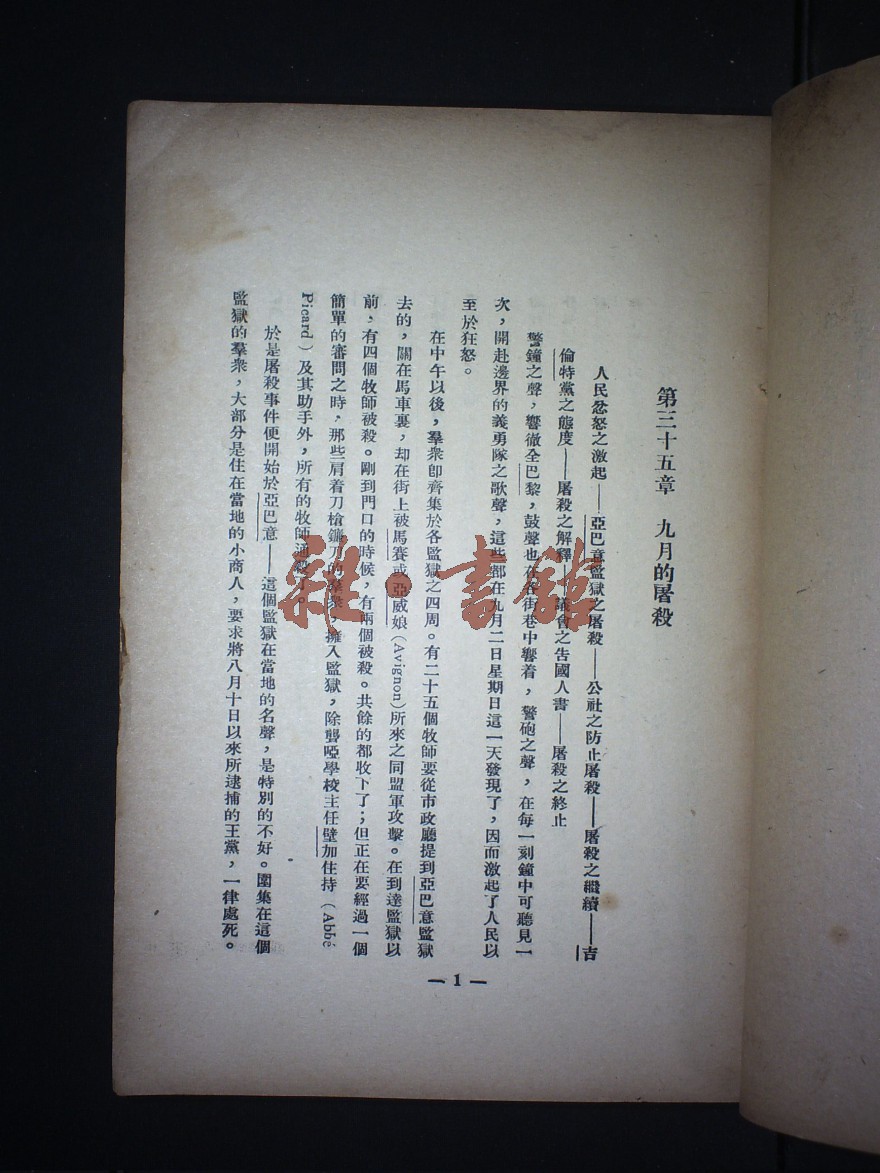 第三十五章　九月的屠殺
人民忿怒之激起——亞巴意監獄之屠殺——公社之防止屠殺——屠殺之繼續——吉
倫特黨之態度——屠殺之解釋——議會之告國人書——屠殺之終止
警鐘之聲，響徹全巴黎，鼓聲也在各街巷中響着，警砲之聲，在每一刻鐘中可聽見一
次，開赴邊界的義勇隊之歌聲，這些都在九月二日星期日這一天發現了，因而激起了人民以
至於狂怒。
在中午以後，羣衆卽齊集於各監獄之四周。有二十五個牧師要從市政廳提到亞巴意監獄
去的，關在馬車裏，却在街上被馬賽或亞威娘（Avignon）所來之同盟軍攻擊。在到達監獄以
前，有四個牧師被殺。剛到門口的時候，有兩個被殺。其餘的都收下了；但正在要經過一個
簡單的審問之時，那些肩着刀槍鐮刀的羣衆，擁入監獄，除聾啞學校主任壁加住持（Abbé
Picard）及其助手外，所有的牧師通殺了。
於是屠殺事件便開始於亞巴意——這個監獄在當地的名聲，是特別的不好。圍集在這個
監獄的羣衆，大部分是住在當地的小商人，要求將八月十日以來所逮捕的王黨，一律處死。
— 1 —
雜·書館